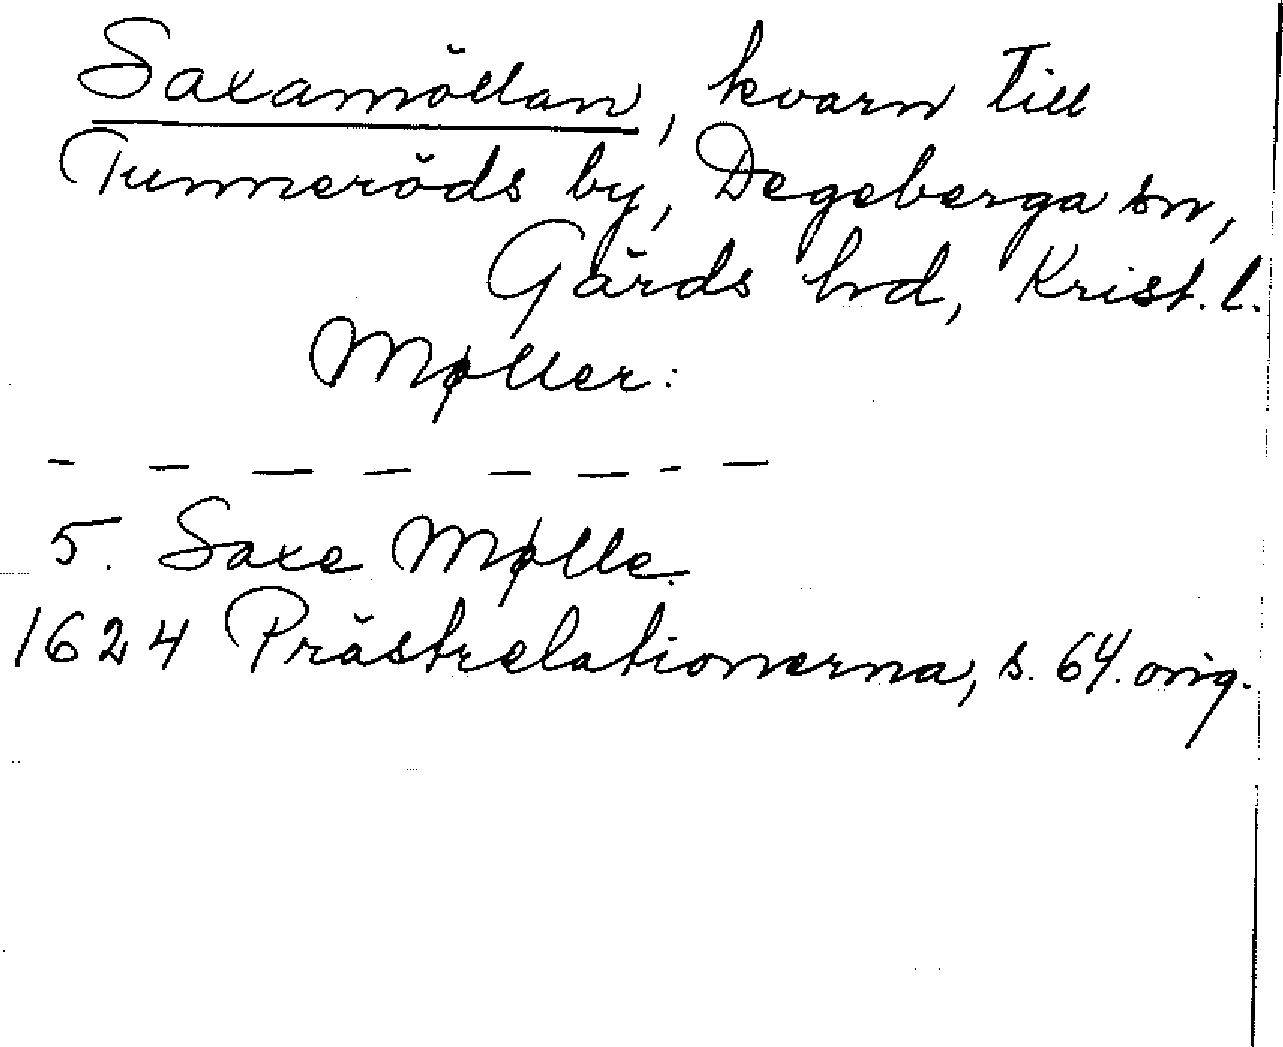 Saxamöllan, kvarn till
Tunneröds by, Degeberga sn,
Gärds hd, Krist. l.
Møller:
– – – – – – – –
5. Saxe Mølle.
1624 Prästrelationerna, s. 64. orig.